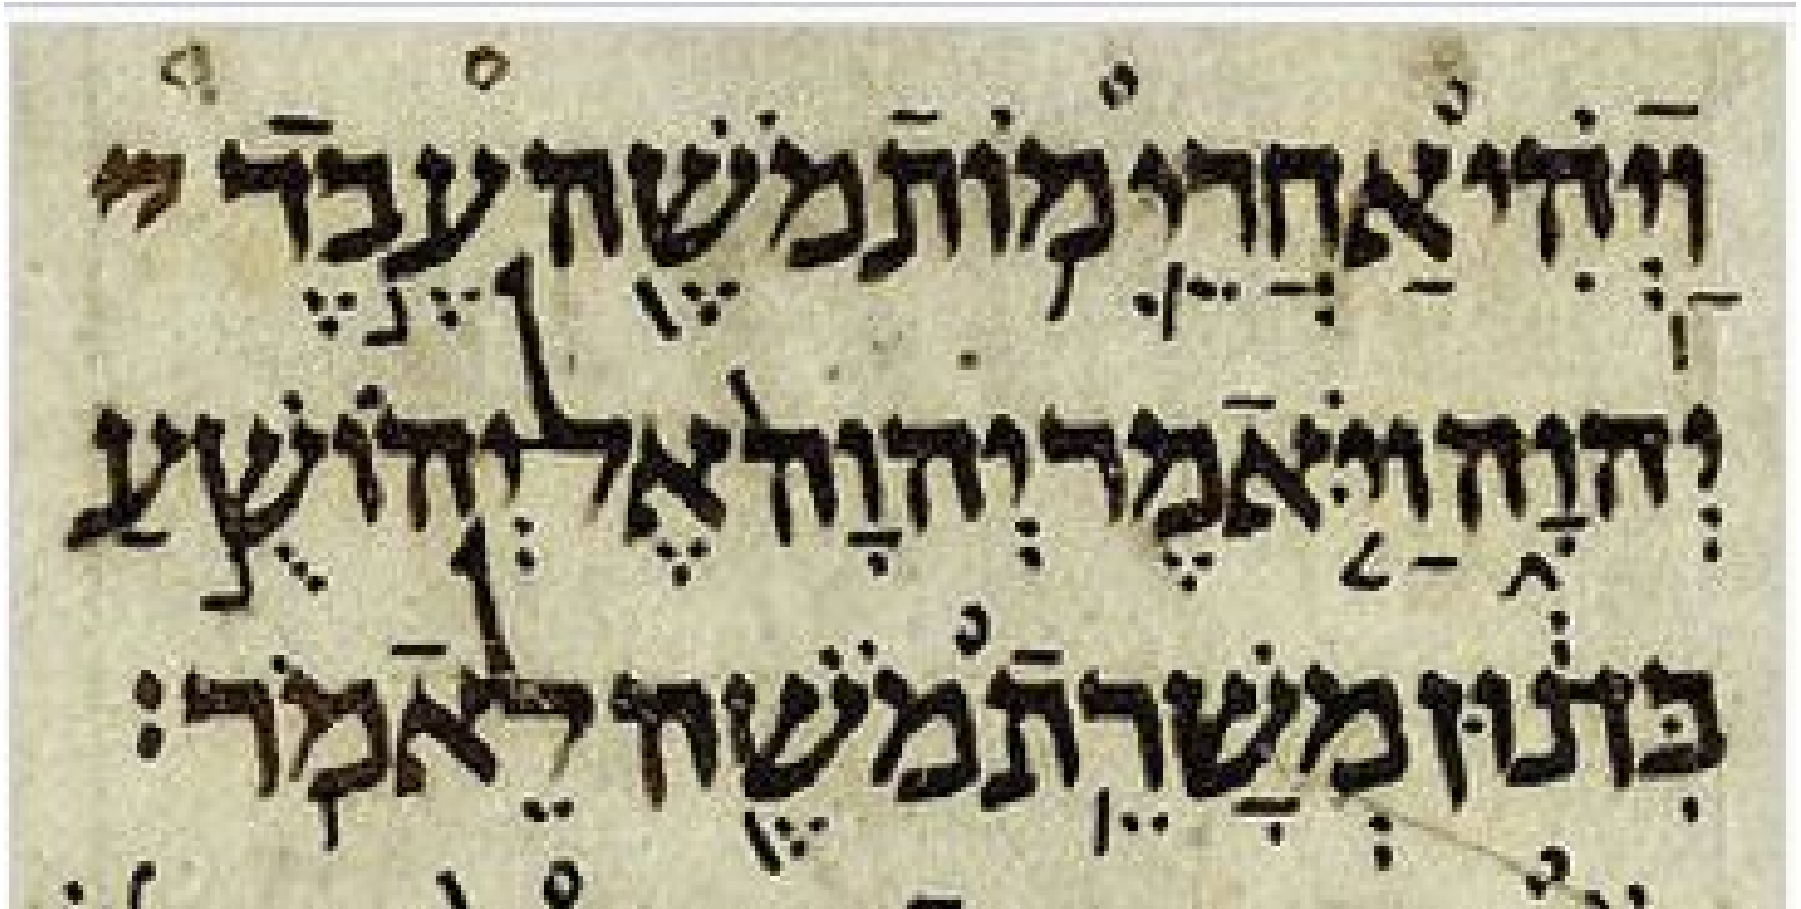 וַיְהִי אַחֲרֵי מוֹת מֹשֶׁה עֶבֶד
יְהוָה וַיֹּאמֶר יְהוָה אֶל יְהוֹשֻׁעַ
בִּן נוּן מְשָׁרֵת מֹשֶׁה לֵאמֹר׃